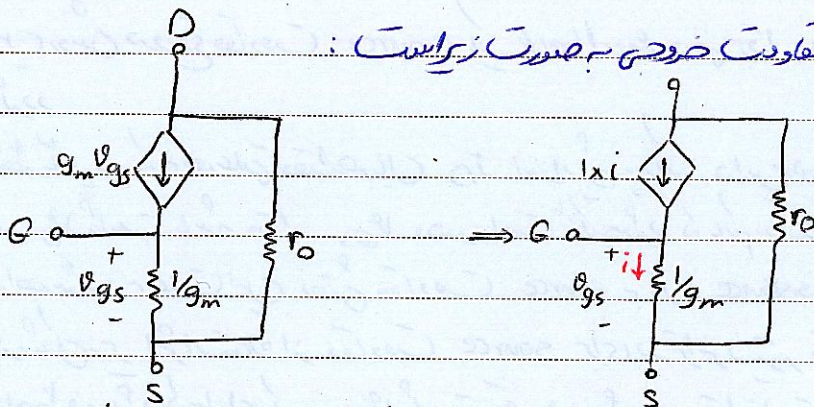 مقاومت خروجی به صورت زیر است :
D
g_m v_gs
G
+
v_gs
-
1/g_m
r_o
S
⇒
1×i
G
+
i↓
v_gs
-
1/g_m
r_o
S